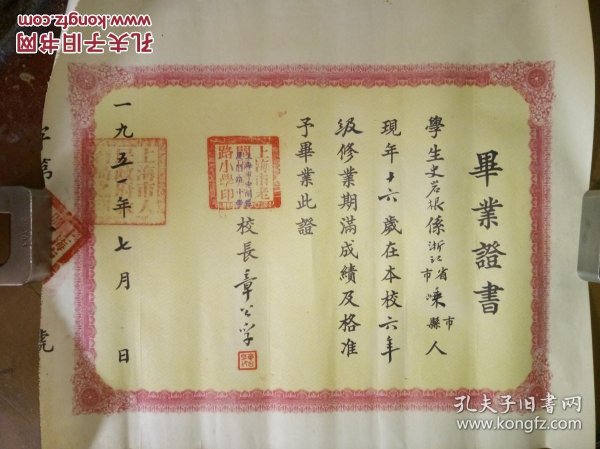 孔夫子旧书网
www.kongfz.com
畢業證書
學生史岩根係浙江省市嵊縣市人
現年十六歲在本校六年
級修業期滿成績及格准
予畢業此證
校長章
一九五一年七月 日
字第
號
孔夫子旧书网
www.kongfz.com